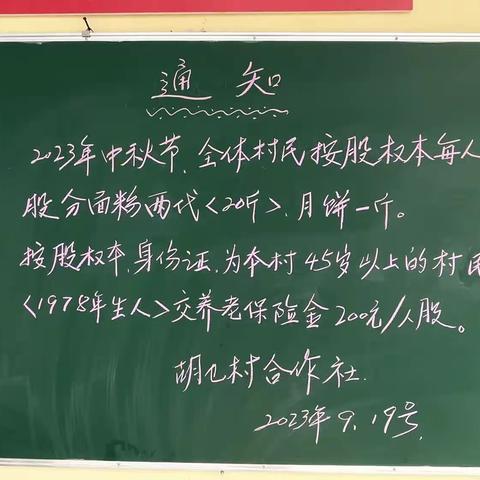 通知
2023年中秋节、全体村民按股权本每人
股分面粉两代<20斤>、月饼一斤。
按股权本,身份证,为本村45岁以上的村民
<1978年生人>交养老保险金200元/人股。
胡七村合作社.
2023年9.19号.